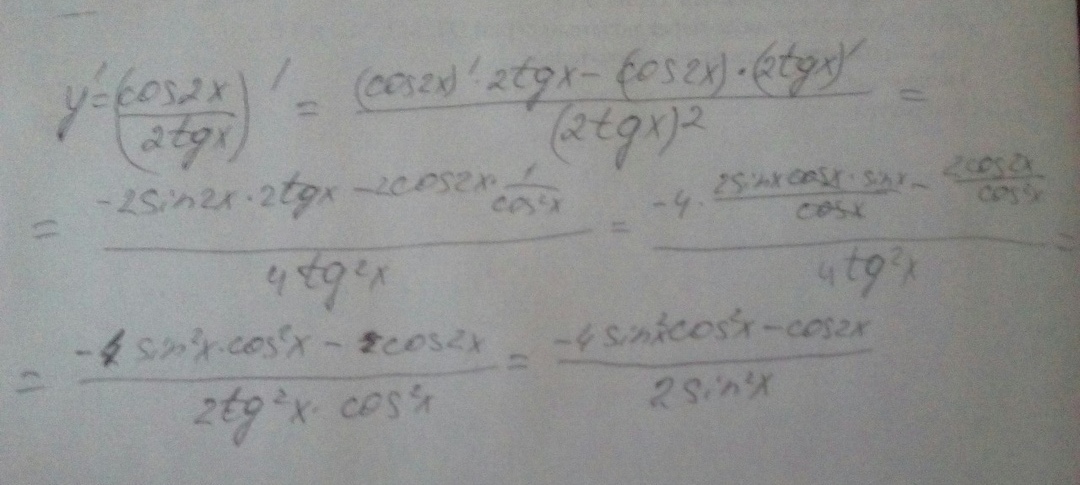 y' = (cos2x / 2tgx)' = ((cos2x)' · 2tgx − (cos2x) · (2tgx)') / (2tgx)² =
= (−2sin2x · 2tgx − 2cos2x · 1/cos²x) / 4tg²x = (−4 · 2sinxcosx · sinx/cosx − 2cos2x/cos²x) / 4tg²x =
= (−4sin²x · cos²x − cos2x) / (2tg²x · cos²x) = (−4sin²xcos²x − cos2x) / 2sin²x